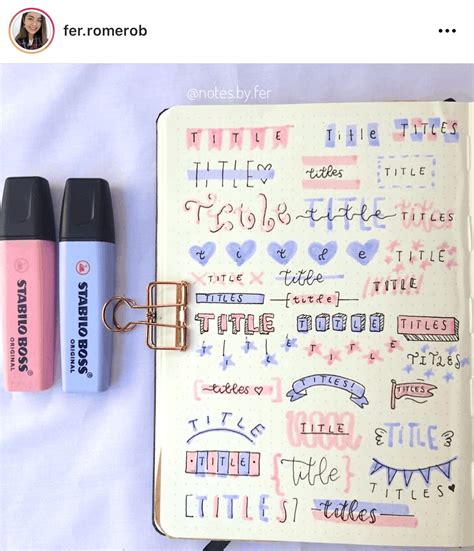 fer.romerob
@notes.by.fer
TITLE Title TITLES
TITLE titles TITLE
Title title TITLE titles TITLES
title TITLE
TITLE title TITLE
TITLES {title}
TITLE TITLE TITLES
TITLE TITLE TITLES
titles TITLES! TITLE
TITLE TITLE TITLE
TITLE {title} TITLES
[TITLES] titles
STABILO BOSS
ORIGINAL
STABILO BOSS
ORIGINAL